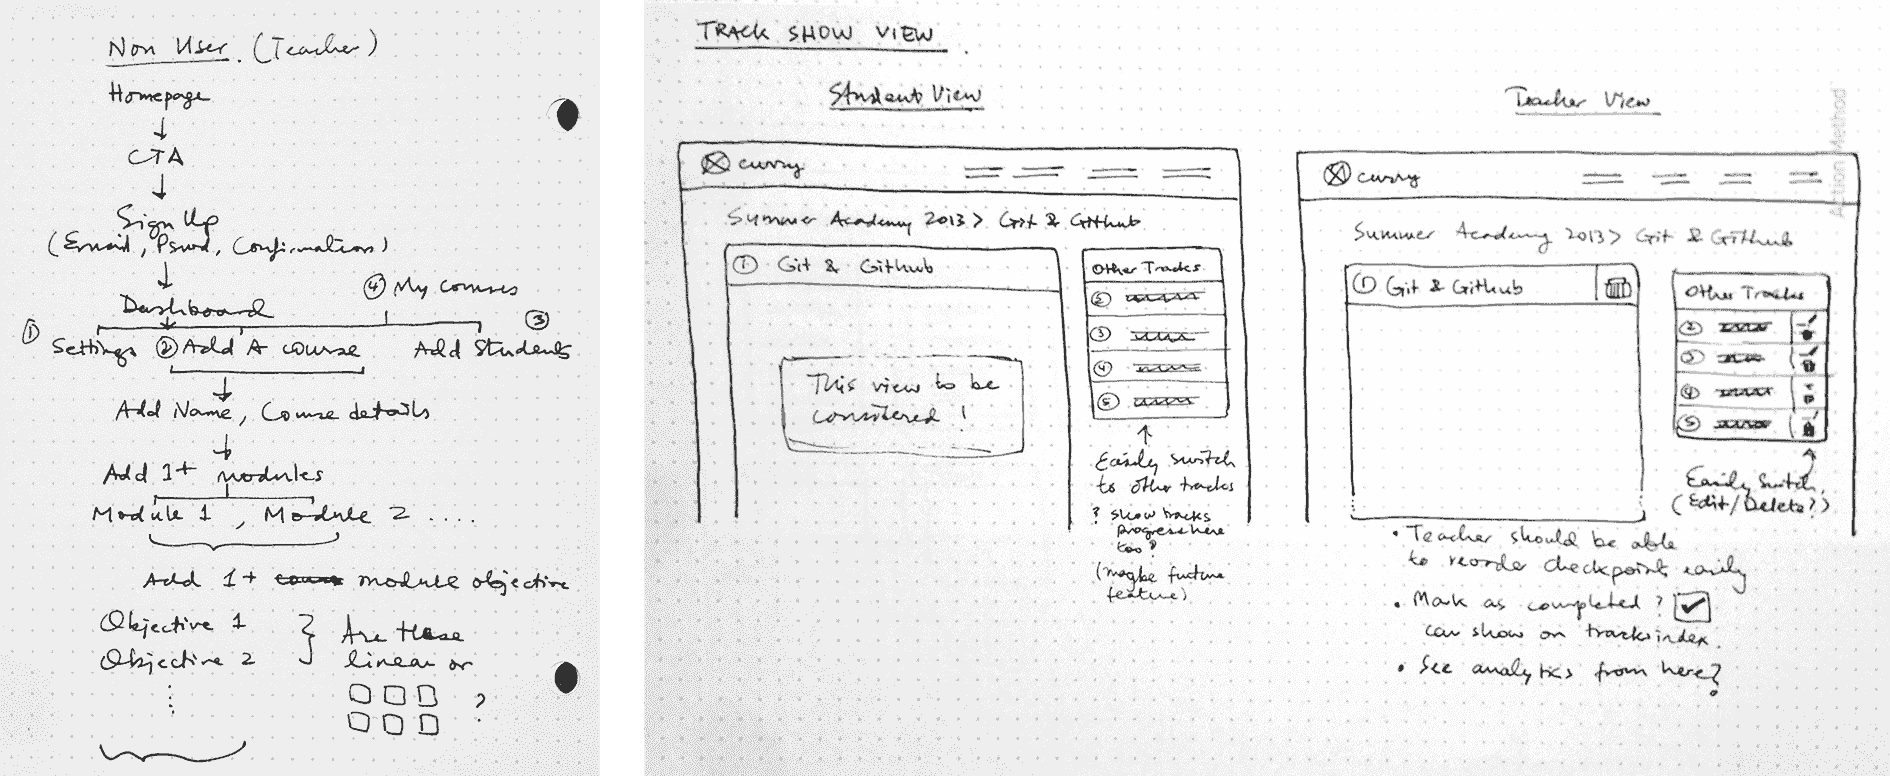 Non User. (Teacher)
Homepage
CTA
Sign Up
(Email, Pswd, Confirmation)
④ My courses
Dashboard
① Settings ② Add A course ③ Add Students
Add Name, Course details
Add 1+ modules
Module 1, Module 2 ....
Add 1+ module objective
Objective 1
Objective 2
Are these
linear or
?
TRACK SHOW VIEW
Student View
curry
Summer Academy 2013 > Git & Github
① Git & Github
This view to be
considered!
Other Tracks
②
③
④
⑤
Easily switch
to other tracks
? show tracks
progress here
too?
(maybe future
feature)
Teacher View
curry
Summer Academy 2013 > Git & Github
① Git & Github
Other Tracks
②
③
④
⑤
Easily switch.
(Edit/Delete?)
• Teacher should be able
to reorder checkpoints easily
• Mark as completed?
can show on tracks index.
• See analytics from here?
Action Method